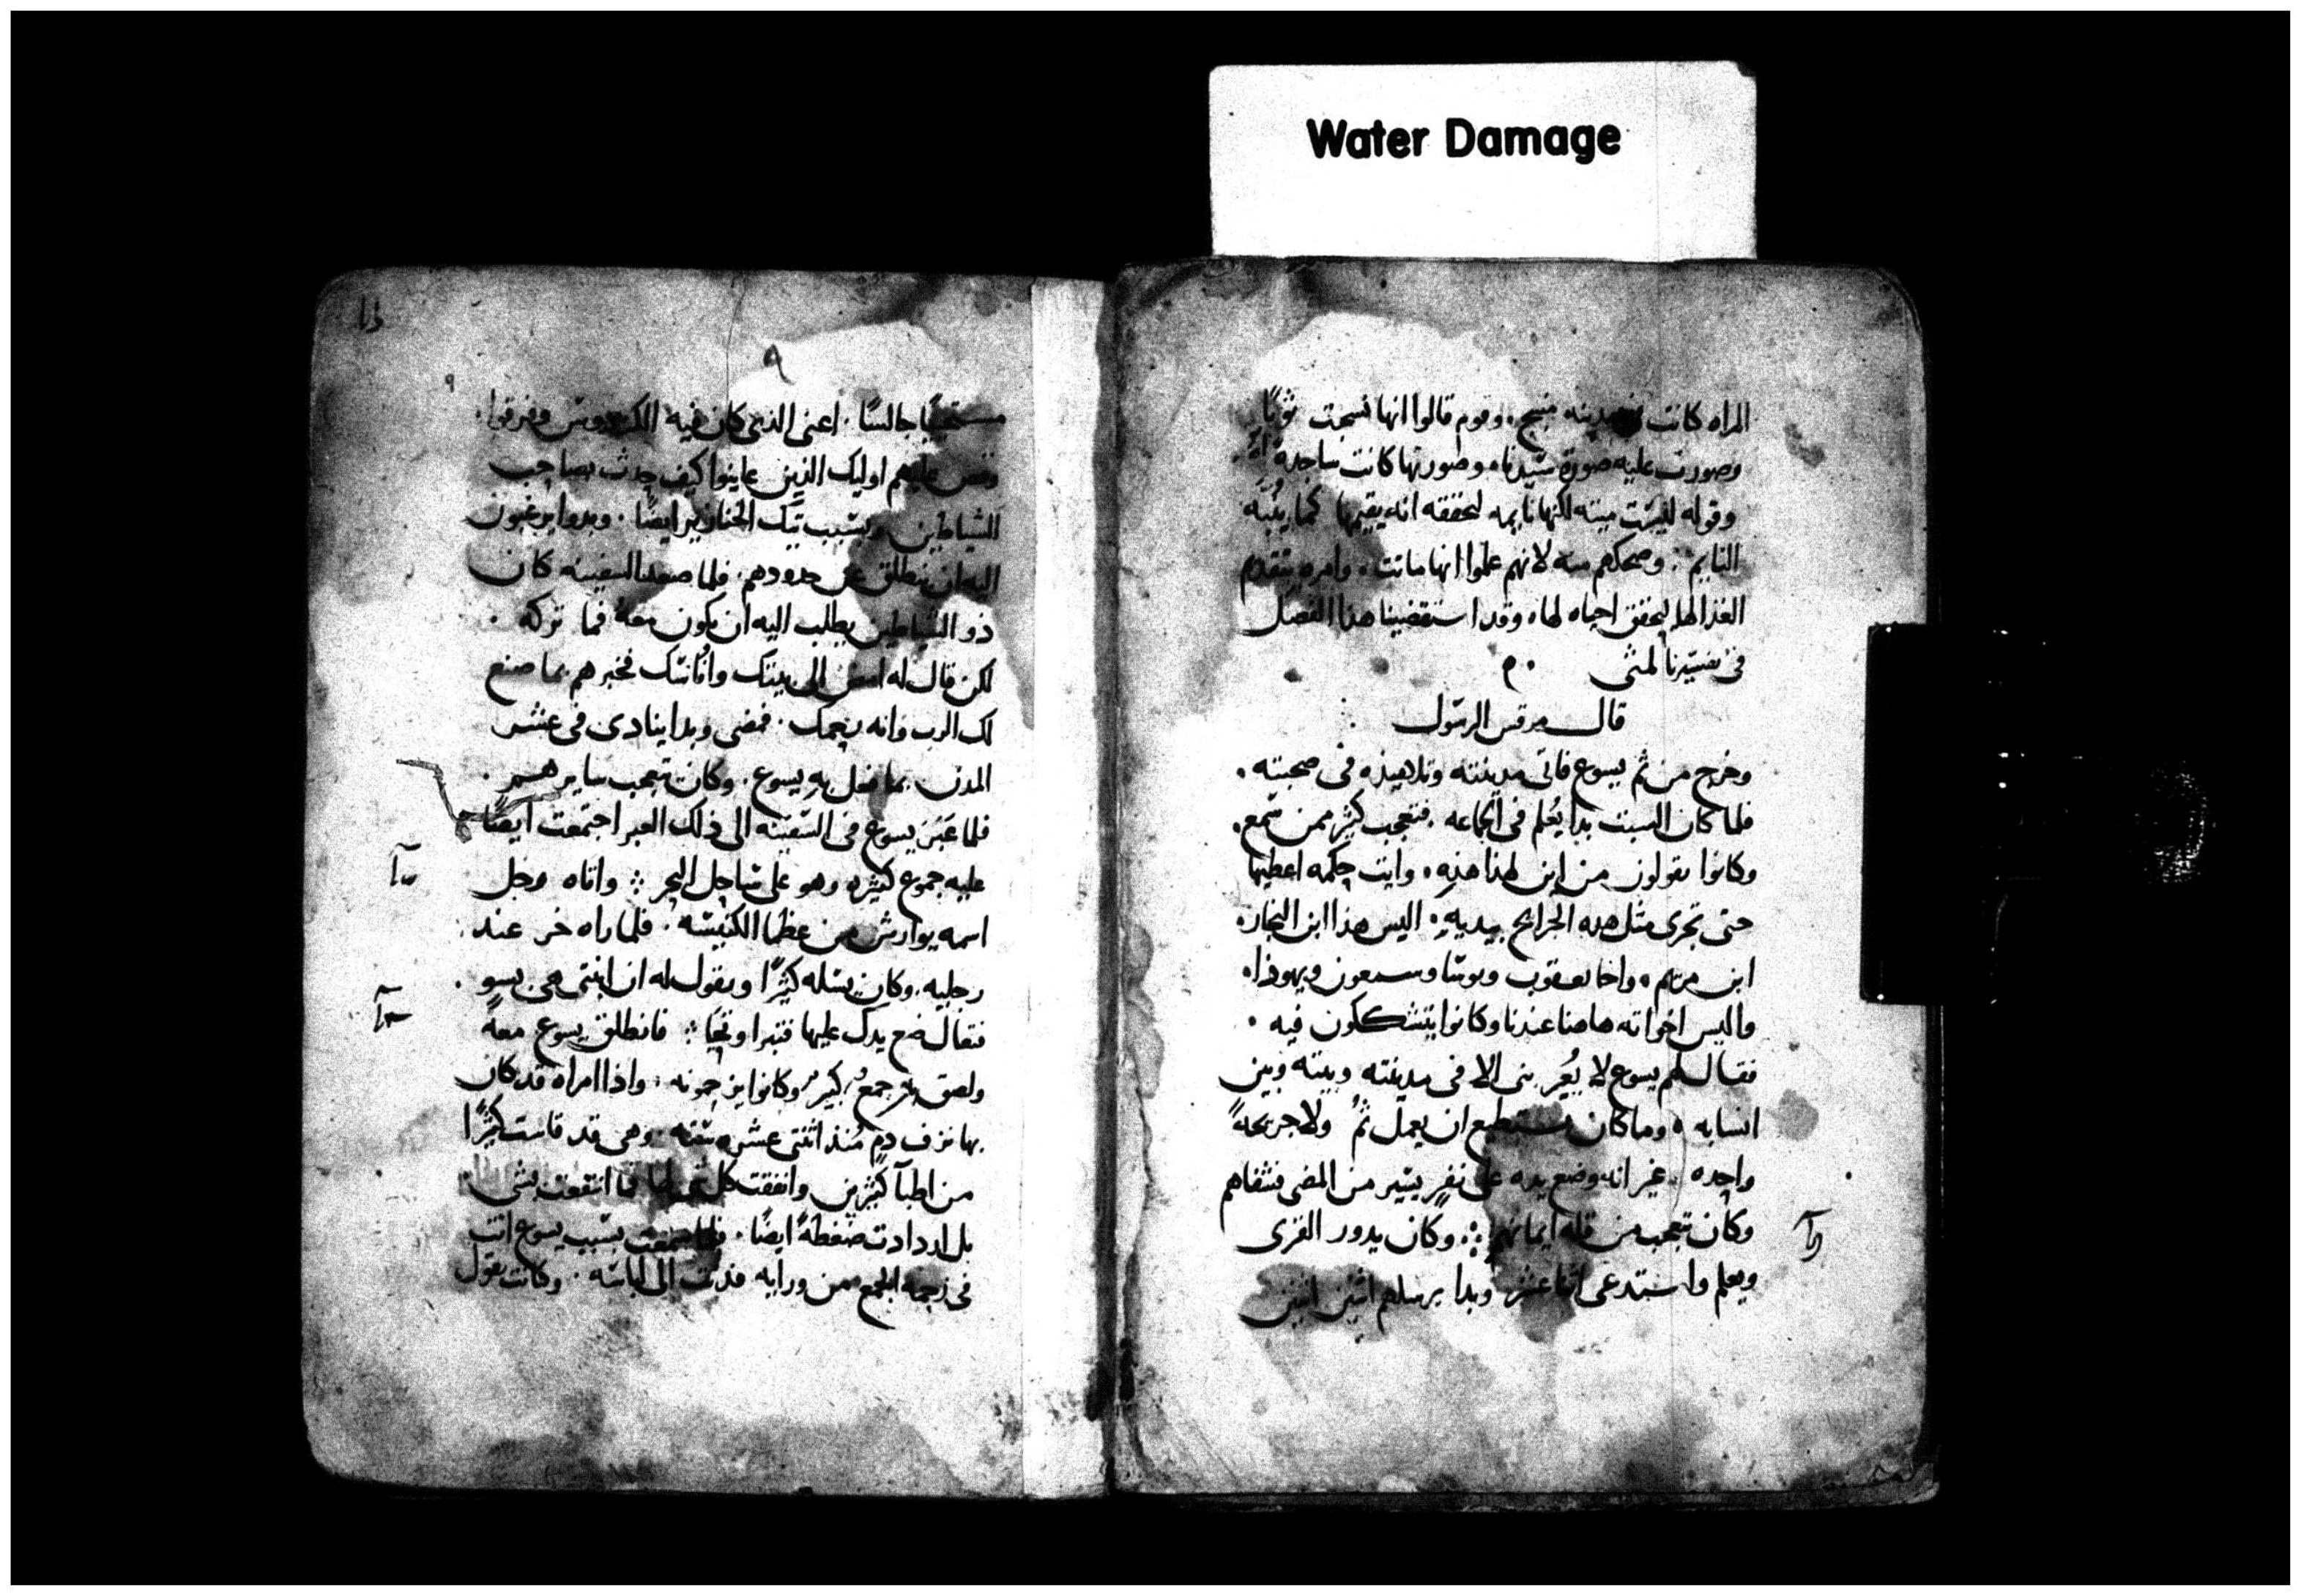 Water Damage
المراه كانت من مدينه منبج. وقوم قالوا انها نسجت ثوبًا
وصورت عليه صورة سيدنا. وصورتها كانت ساجدة
وقوله ليست ميته لكنها نايمه لتحققه انه يقيمها كما ينبه
النايم: وضحكهم منه لانهم علموا انها ماتت. وامره بتقدم
الغذا لها ليحقق احياه لها. وقد استقضينا هذا الفصل
في تفسيرنا لمتى
قال مرقس الرسول
وخرج من ثم يسوع فاتى مدينته وتلاميذه في صحبته.
فلما كان السبت بدا يُعلم في الجماعه. فتعجب كثير ممن سمع.
وكانوا يقولون من اين لهذا هذه. وايت حكمه اعطيها
حتى تجرى مثل هذه الجرايح بيديه. اليس هذا ابن النجار.
ابن مريم. واخا يعقوب ويوسا وسمعون ويهوذا.
واليس اخواته هاهنا عندنا وكانوا يتشككون فيه.
فقال لهم يسوع لا يُعير نبى الا في مدينته وبيته وبين
انسابه. وما كان يستطيع ان يعمل ثمُ ولا جريحةً
واحده. غير انه وضع يده على نفرٍ يسير من المضى فشفاهم
وكان تعجب من قله ايمانهم: وكان يدور القرى
ويعلم واستدعى اثنا عشر وبدا يرسلهم اثنين اثنين
٩
٩
مستحييًا جالسًا. اعنى الذي كان فيه وفرقوا.
وقص عليهم اوليك الذين عاينوا كيف حدث بصاحب
الشياطين وبسبب تيك الخنازير ايضًا. وبدوا يرغبون
اليه ان ينطلق عن حدودهم. فلما صعد السفينه كان
ذو الشياطين يطلب اليه ان يكون معهُ فما تركه.
لكن قال له امض الى بيتك واناسك فخبرهم بما صنع
لك الرب وانه رحمك. فمضى وبدا ينادى في عشر
المدن بما فعل به يسوع. وكان تعجب سايرهم.
فلما عَبَر يسوع في السفينه الى ذلك العبر اجتمعت ايضًا
عليه جموع كثيره وهو على ساحل البحر: واتاه رجل
اسمه يوارش من عظما الكنيسه. فلما راه خر عند
رجليه. وكان يسله كثيرًا ويقول له ان ابنتى هى بسو.
فتعال ضع يدك عليها فتبرا وتحيا: فانطلق يسوع معهُ
ولصق به جمعٌ كبيرٌ وكانوا يزحمونه. واذا امراه قد كان
بها نزف دم مُنذ اثنتى عشره سنه. وهى قد قاست كثيرًا
من اطبآ كثيرين وانفقت كل فما انتفعت بشى.
بل ازدادت ضغطةً ايضًا. فلما سمعت بسبب يسوع اتت
في زحمة الجمع من ورايه فدنت الى لباسه. وكانت تقول